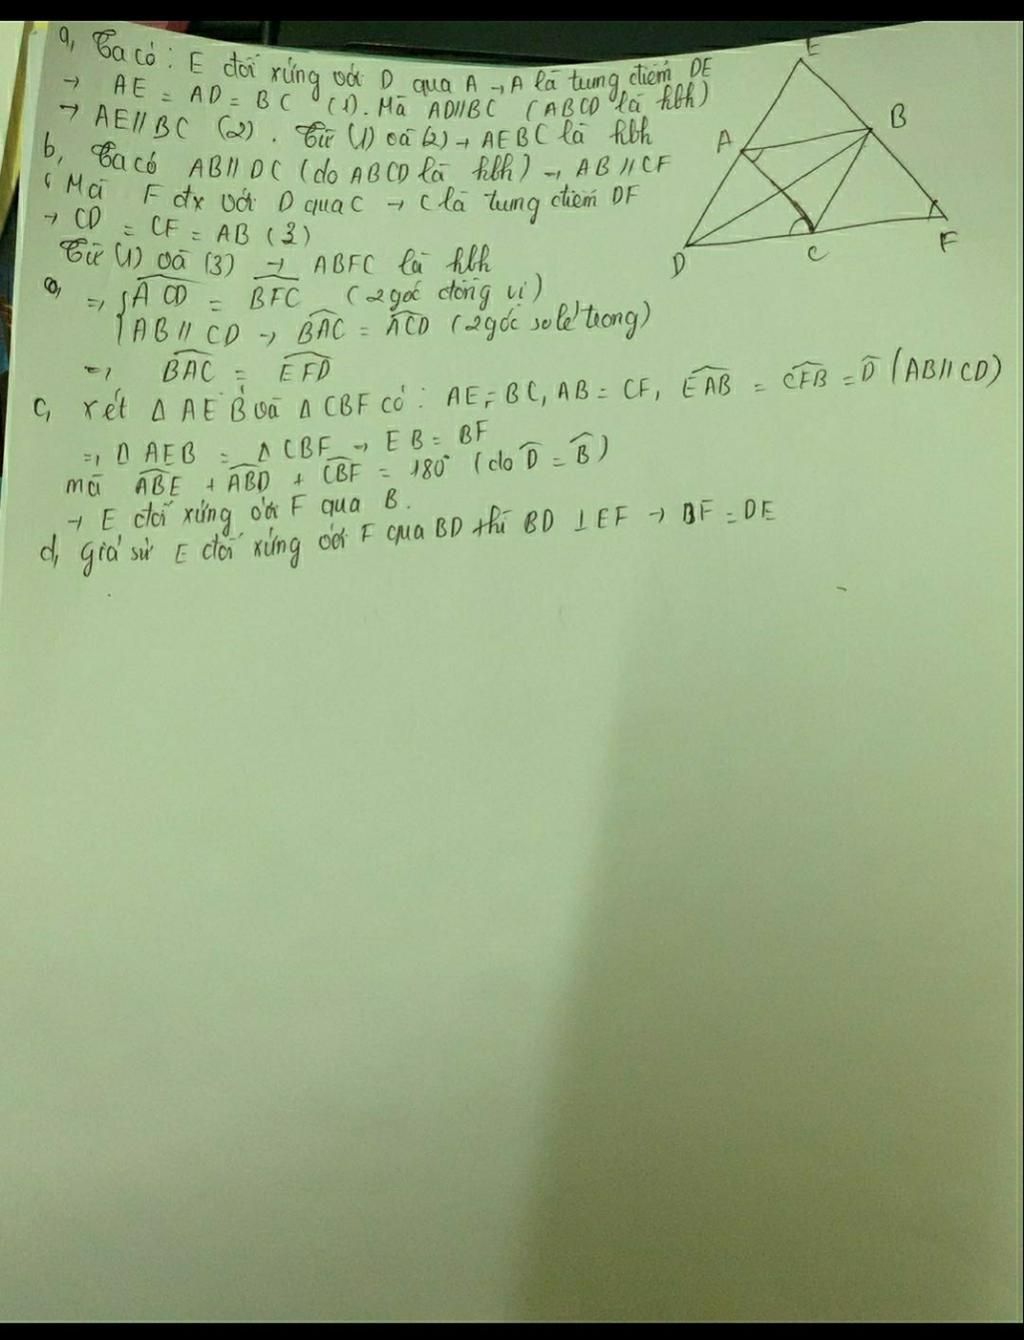 a, Ta có: E đối xứng với D qua A → A là trung điểm DE
→ AE = AD = BC (1). Mà AD//BC (ABCD là hbh)
→ AE//BC (2). Từ (1) và (2) → AEBC là hbh
b, Ta có AB//DC (do ABCD là hbh) → AB//CF
Mà F đx với D qua C → C là trung điểm DF
→ CD = CF = AB (3)
Từ (1) và (3) → ABFC là hbh
=> { \widehat{ACD} = \widehat{BFC} (2 góc đồng vị)
AB // CD → \widehat{BAC} = \widehat{ACD} (2 góc so le trong)
=> \widehat{BAC} = \widehat{EFD}
c, xét Δ AEB và Δ CBF có: AE = BC, AB = CF, \widehat{EAB} = \widehat{CFB} = \widehat{D} (AB//CD)
=> Δ AEB = Δ CBF → EB = BF
mà \widehat{ABE} + \widehat{ABD} + \widehat{CBF} = 180° (do \widehat{D} = \widehat{B})
→ E đối xứng với F qua B.
d, giả sử E đối xứng với F qua BD thì BD ⊥ EF → DF = DE
E
B
A
D
C
F